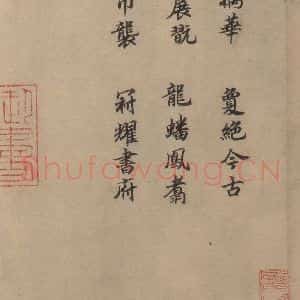 摛華 敻絶今古
展翫 龍蟠鳳翥
巾襲 冠耀書府
shufawang.CN